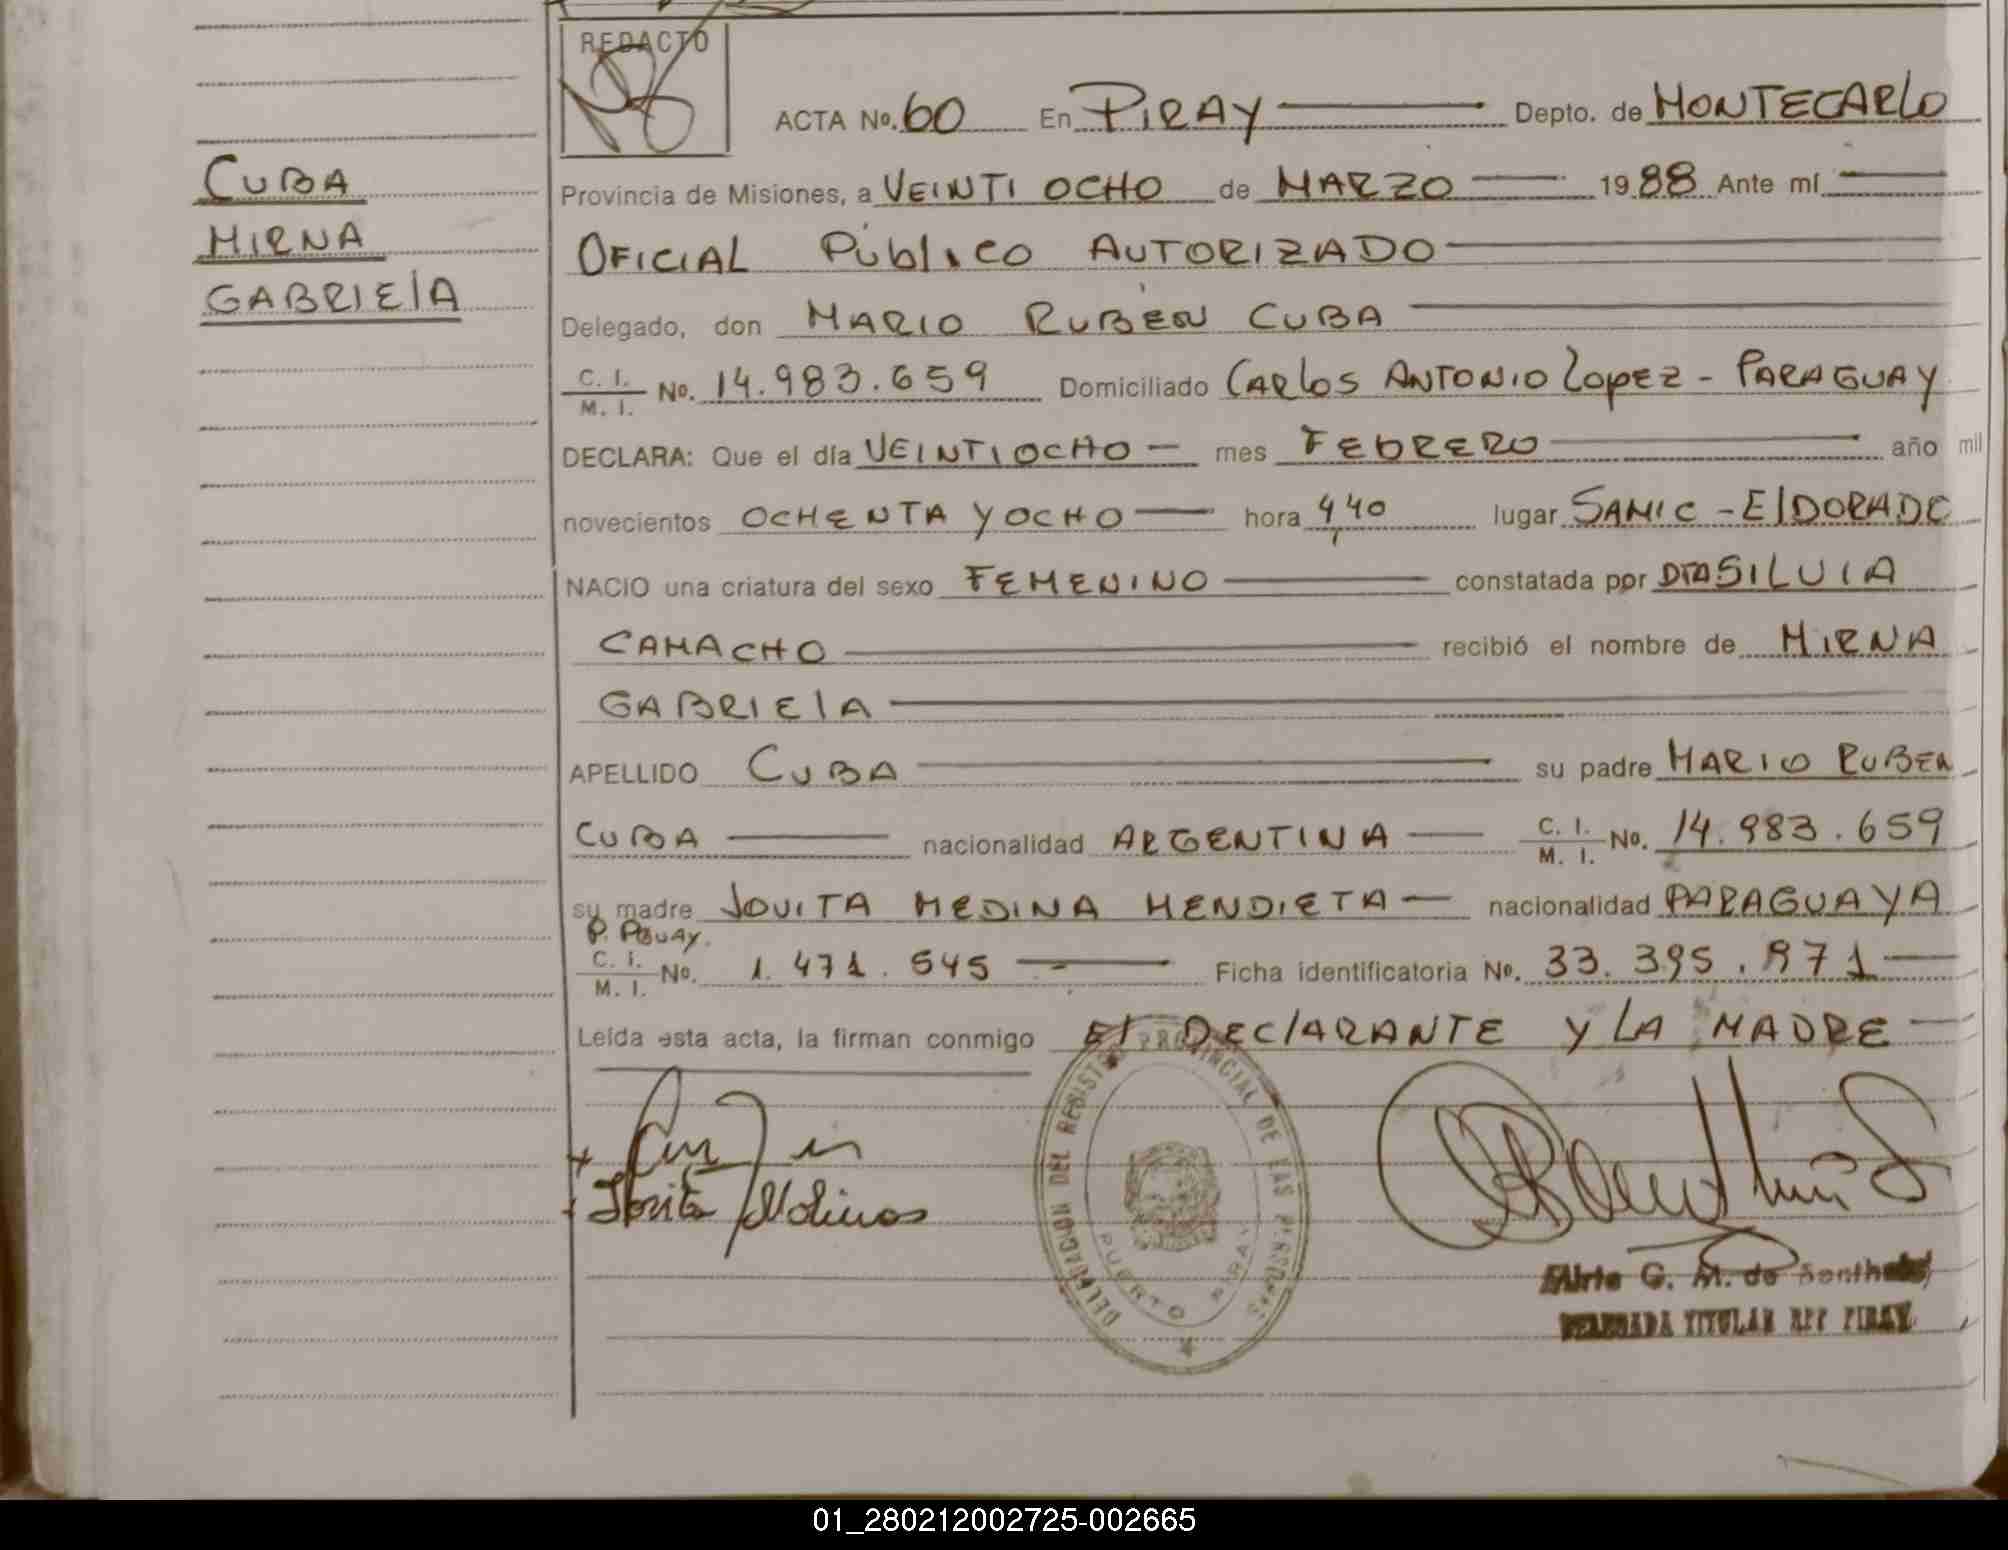 REDACTO
ACTA No. 60 En PIRAY Depto. de MONTECARLO
CUBA
MIRNA
GABRIELA
Provincia de Misiones, a VEINTI OCHO de MARZO 1988 Ante mí
OFICIAL PúblICO AUTORIZADO
Delegado, don MARIO RUBÉN CUBA
C. I. / M. I. No. 14.983.659 Domiciliado CARlOS ANTONIO lOPEZ - PARAGUAY
DECLARA: Que el día VEINTIOCHO - mes FEBRERO año mil
novecientos OCHENTA Y OCHO hora 4,40 lugar SAMIC - ElDORADO
NACIO una criatura del sexo FEMENINO constatada por DRA SILVIA
CAMACHO recibió el nombre de MIRNA
GABRIElA
APELLIDO CUBA su padre MARIO RUBEN
CUBA nacionalidad ARGENTINA C. I. / M. I. No. 14.983.659
su madre JOVITA MEDINA MENDIETA - nacionalidad PARAGUAYA
P. PGUAY.
C. I. / M. I. No. 1.471.545 Ficha identificatoria No. 33.395.971
Leída esta acta, la firman conmigo El DEClARANTE Y LA MADRE
DELEGACION DEL REGISTRO PROVINCIAL DE LAS PERSONAS
PUERTO PIRAY
G. M. de
DELEGADA TITULAR RPP PIRAY
01_280212002725-002665